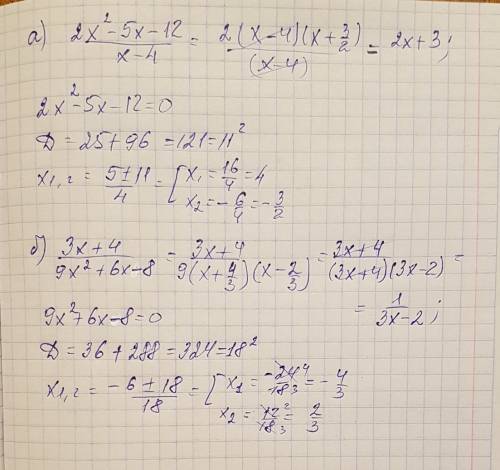 а) (2x² - 5x - 12)/(x - 4) = 2(x - 4)(x + 3/2)/(x - 4) = 2x + 3;
2x² - 5x - 12 = 0
D = 25 + 96 = 121 = 11²
x1,2 = (5 ± 11)/4 = [ x1 = 16/4 = 4
x2 = -6/4 = -3/2
б) (3x + 4)/(9x² + 6x - 8) = (3x + 4)/(9(x + 4/3)(x - 2/3)) = (3x + 4)/((3x + 4)(3x - 2)) =
= 1/(3x - 2);
9x² + 6x - 8 = 0
D = 36 + 288 = 324 = 18²
x1,2 = (-6 ± 18)/18 = [ x1 = -24 4/18 3 = -4/3
x2 = 12 2/18 3 = 2/3